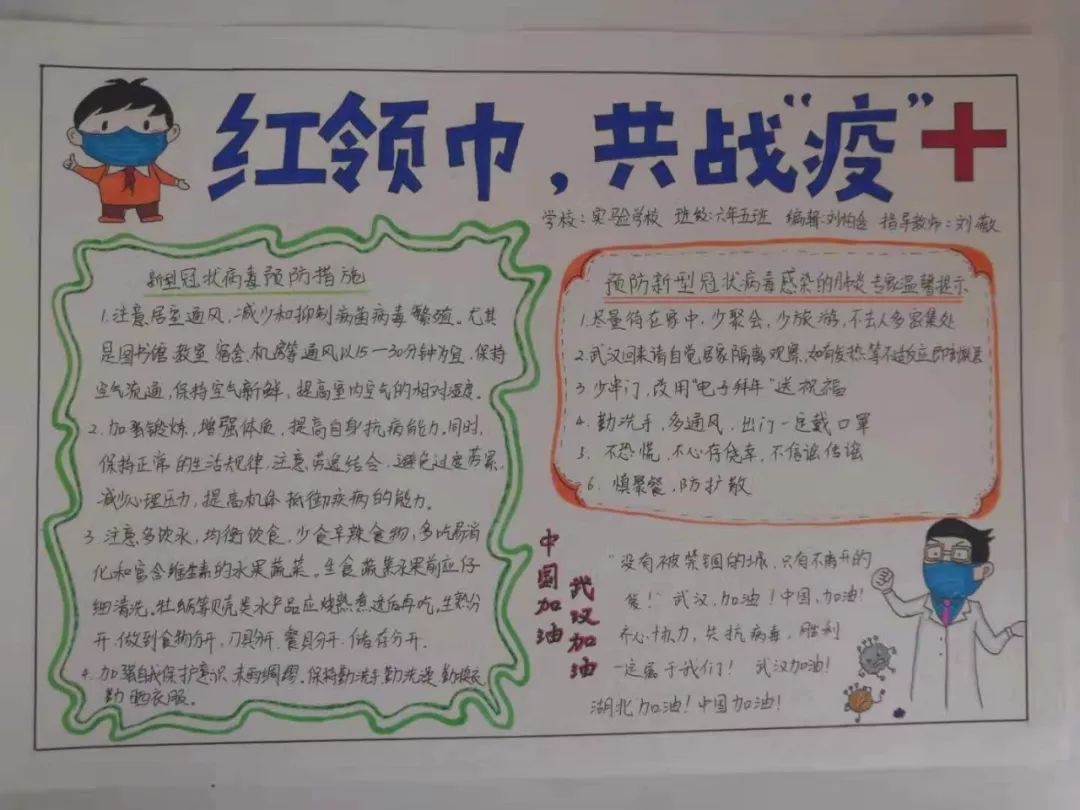 红领巾，共战“疫”
学校：实验学校 班级：六年五班 编辑：刘怡 指导教师：刘薇
新型冠状病毒预防措施
1.注意居室通风，减少和抑制病菌病毒繁殖。尤其
是图书馆.教室.宿舍.机房等通风以15—30分钟为宜，保持
空气流通，保持空气新鲜，提高室内空气的相对湿度。
2.加强锻炼，增强体质，提高自身抗病能力，同时，
保持正常的生活规律，注意劳逸结合，避免过度劳累，
减少心理压力，提高机体抵御疾病的能力。
3.注意多饮水，均衡饮食，少食辛辣食物，多吃易消
化和富含维生素的水果蔬菜。生食蔬菜水果前应仔
细清洗，牡蛎等贝壳类水产品应烧熟煮透后再吃，生熟分
开.做到食物分开.刀具分开.餐具分开.储存分开.
4.加强自我保护意识.未雨绸缪.保持勤洗手.勤洗澡.勤换衣.
勤晒衣服。
预防新型冠状病毒感染的肺炎专家温馨提示
1.尽量待在家中，少聚会，少旅游，不去人多密集处
2.武汉回来请自觉居家隔离观察，如有发热等不适应立即就医
3.少串门，改用“电子拜年”送祝福
4.勤洗手，多通风，出门一定戴口罩
5.不恐慌，不心存侥幸，不信谣传谣
6.慎聚餐，防扩散
中国加油
武汉加油
“没有被禁锢的城，只有不离开的
爱！”武汉，加油！中国，加油！
齐心协力，共抗病毒，胜利
一定属于我们！武汉加油！
湖北加油！中国加油！